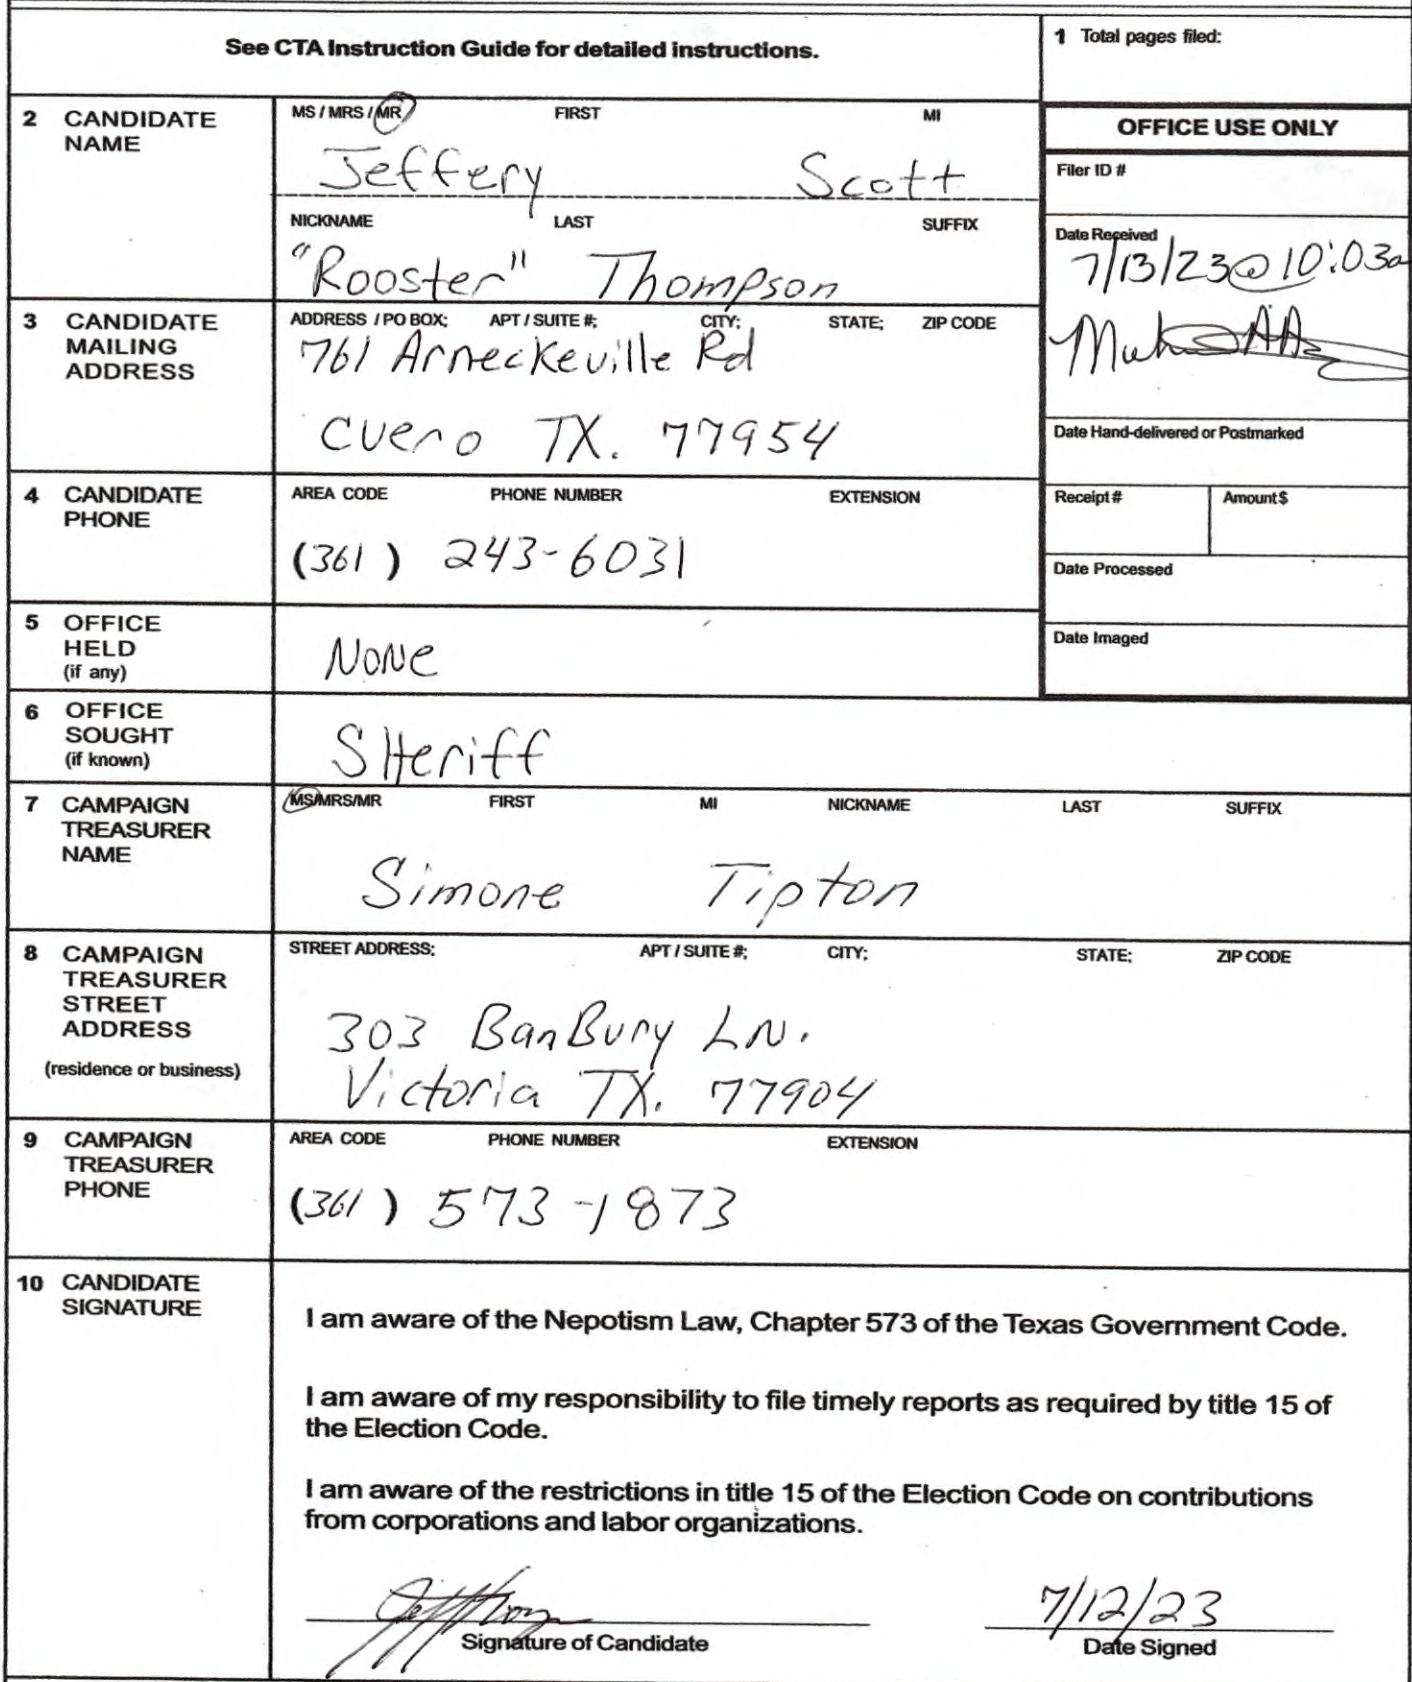 See CTA Instruction Guide for detailed instructions.
1 Total pages filed:
2 CANDIDATE NAME
MS / MRS / MR FIRST MI
Jeffery Scott
NICKNAME LAST SUFFIX
"Rooster" Thompson
OFFICE USE ONLY
Filer ID #
Date Received
7/13/23@10:03a
3 CANDIDATE MAILING ADDRESS
ADDRESS / PO BOX; APT / SUITE #; CITY; STATE; ZIP CODE
761 Arneckeville Rd
Cuero TX. 77954
Date Hand-delivered or Postmarked
4 CANDIDATE PHONE
AREA CODE PHONE NUMBER EXTENSION
(361) 243-6031
Receipt # Amount $
Date Processed
Date Imaged
5 OFFICE HELD (if any)
NONE
6 OFFICE SOUGHT (if known)
SHeriff
7 CAMPAIGN TREASURER NAME
MS/MRS/MR FIRST MI NICKNAME LAST SUFFIX
Simone Tipton
8 CAMPAIGN TREASURER STREET ADDRESS
(residence or business)
STREET ADDRESS; APT / SUITE #; CITY; STATE; ZIP CODE
303 BanBury LN.
Victoria TX. 77904
9 CAMPAIGN TREASURER PHONE
AREA CODE PHONE NUMBER EXTENSION
(361) 573-1873
10 CANDIDATE SIGNATURE
I am aware of the Nepotism Law, Chapter 573 of the Texas Government Code.
I am aware of my responsibility to file timely reports as required by title 15 of
the Election Code.
I am aware of the restrictions in title 15 of the Election Code on contributions
from corporations and labor organizations.
7/12/23
Signature of Candidate Date Signed